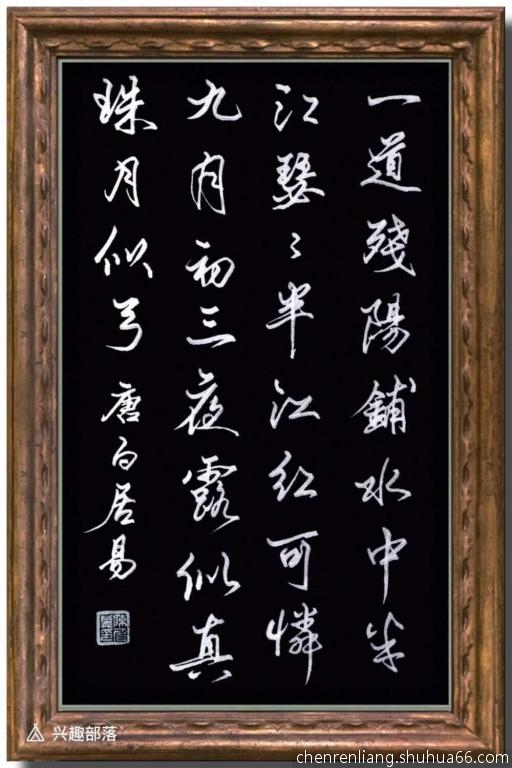 一道殘陽鋪水中半
江瑟々半江红可憐
九月初三夜露似真
珠月似弓 唐白居易
兴趣部落
chenrenliang.shuhua66.com